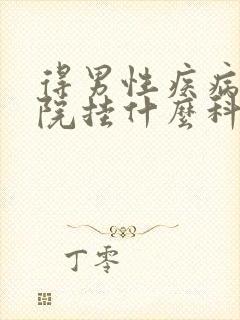 得男性疾病
院挂什麼科
丁零